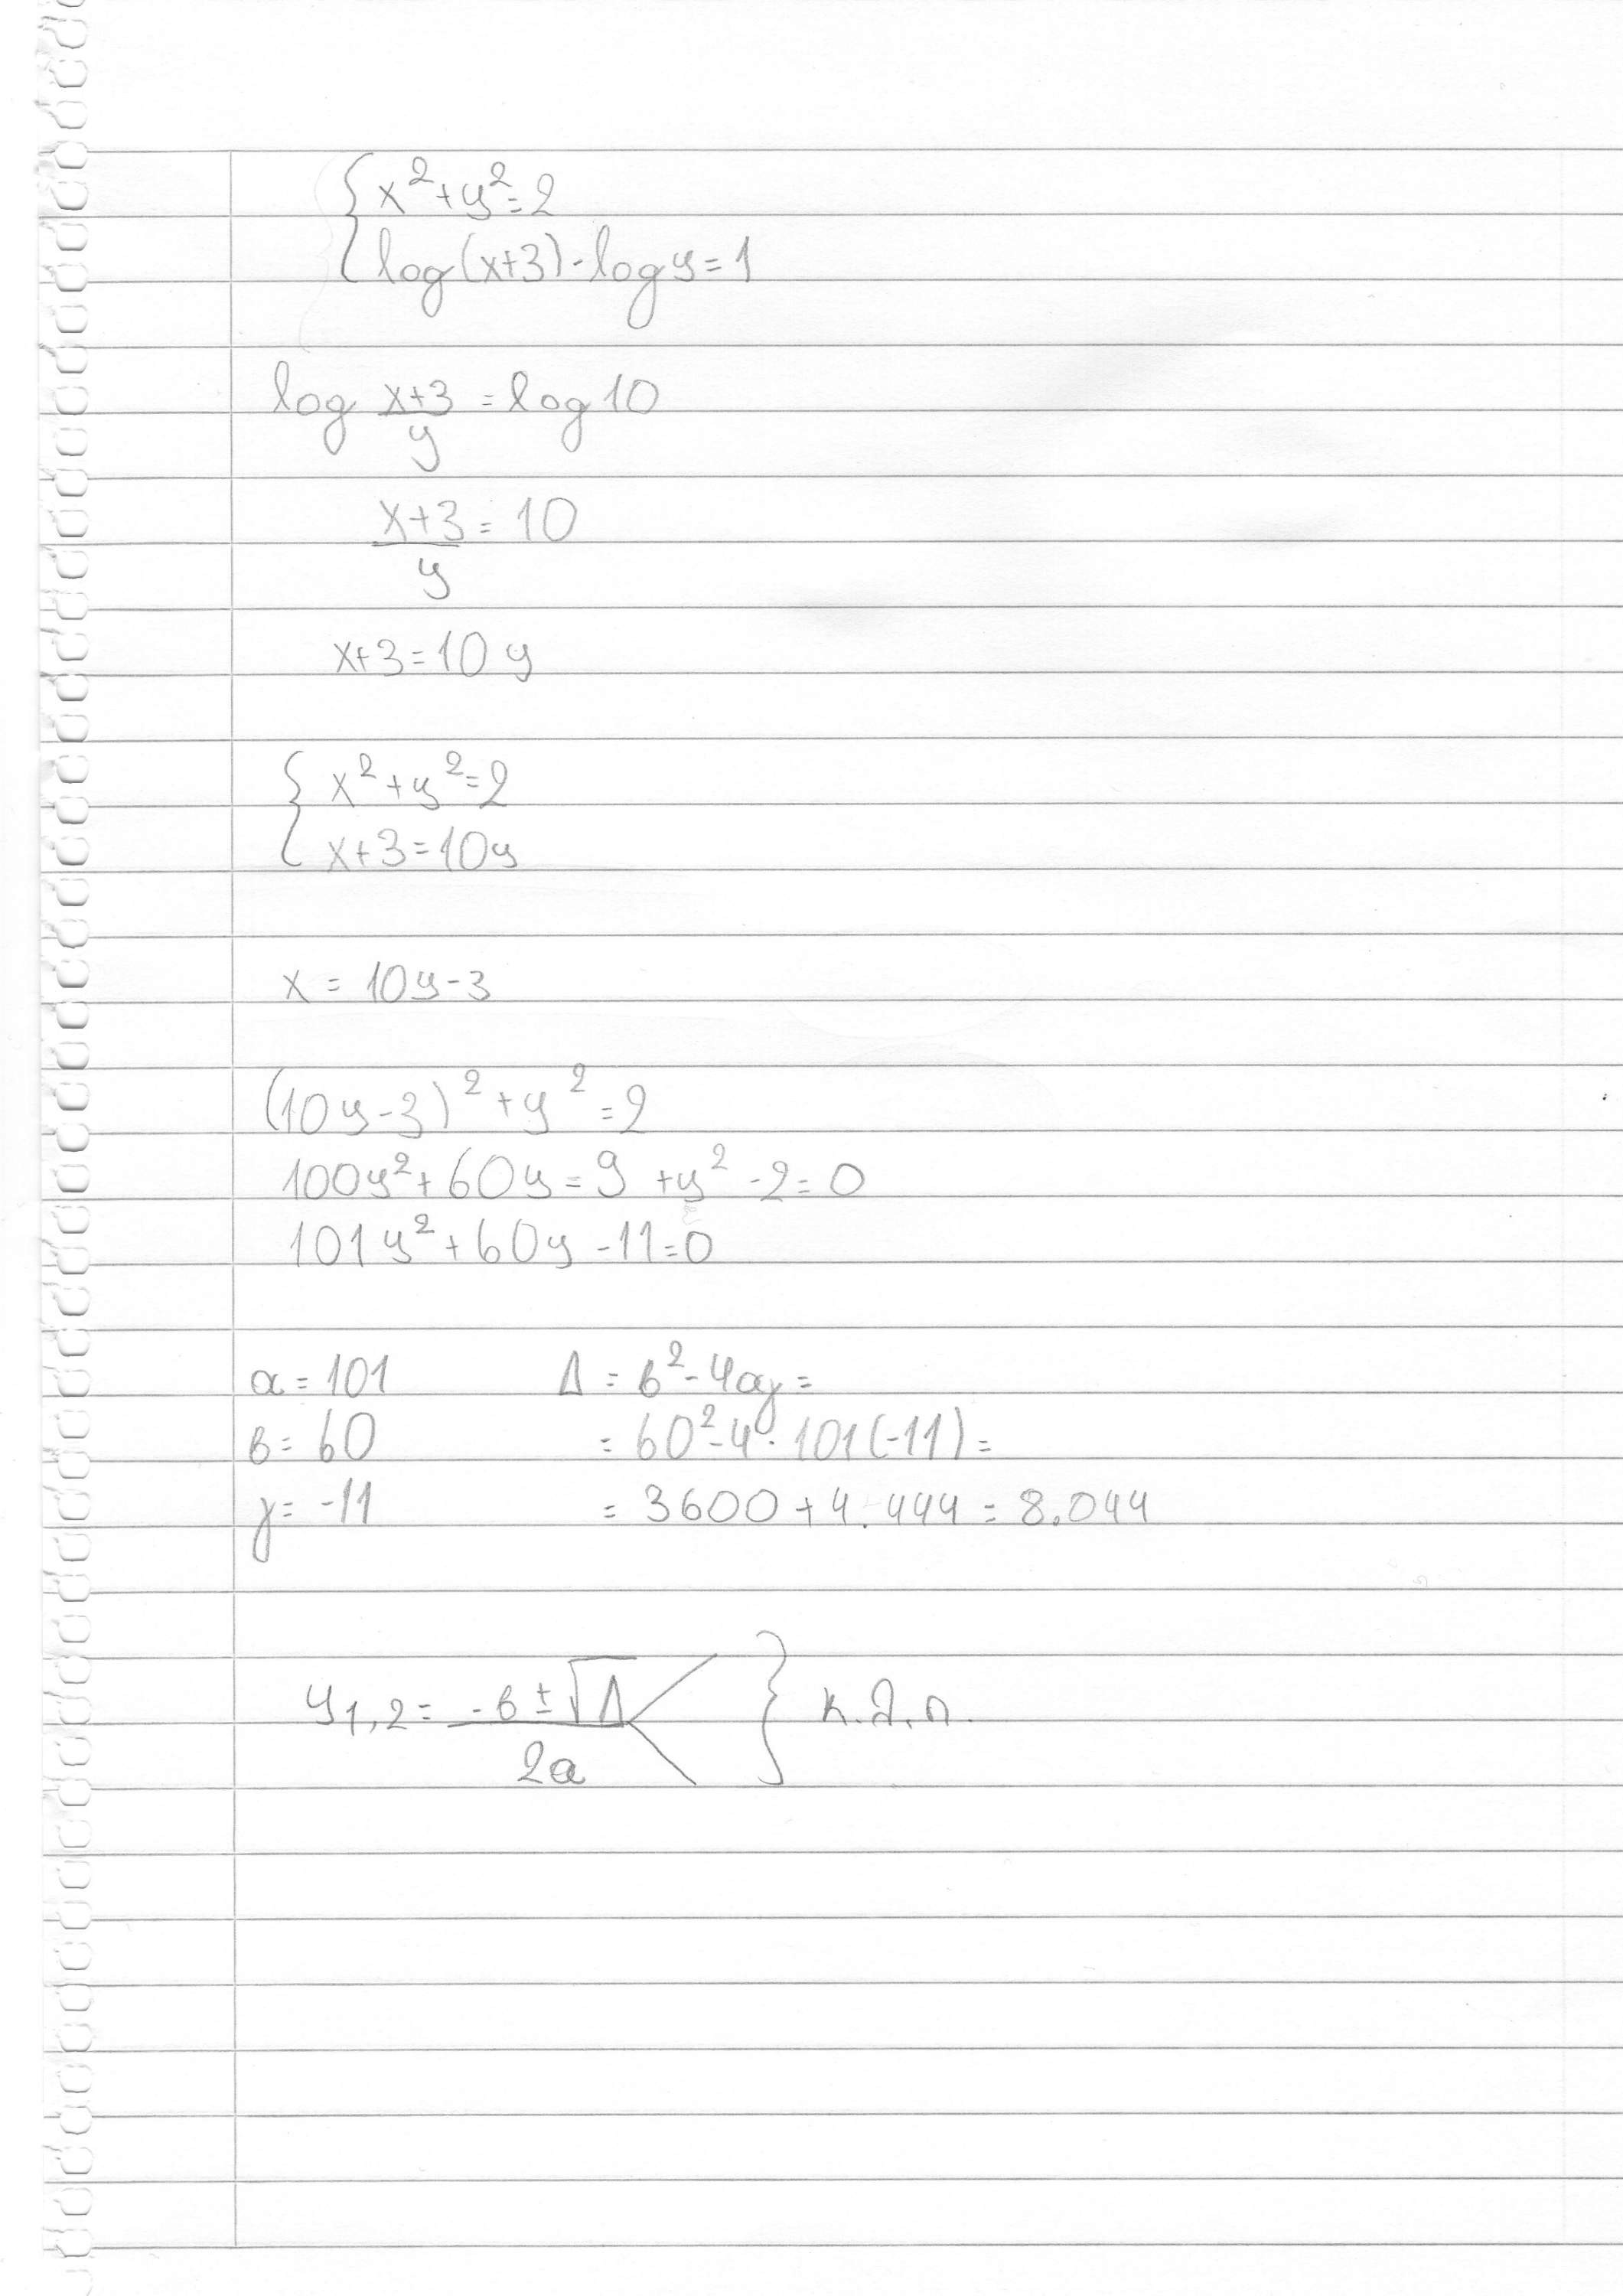 { x²+y²=2
log(x+3)-log y=1
log x+3/y = log 10
x+3/y = 10
x+3=10y
{ x²+y²=2
x+3=10y
x = 10y-3
(10y-3)²+y²=2
100y²+60y=9+y²-2=0
101y²+60y-11=0
α=101 Δ=β²-4αγ=
β=60 =60²-4·101(-11)=
γ=-11 =3600+4.444=8.044
y1,2= -β±√Δ/2α } κ.λ.π.